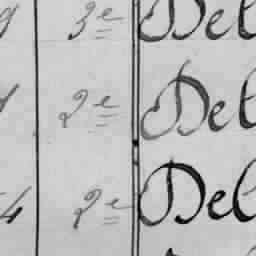 3e Del
2e Del
4 2e Del